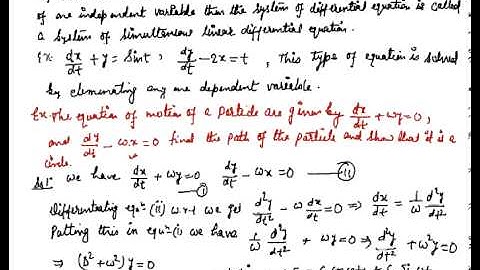 of one independent variable then the system of differential equation is called
a system of simultaneous linear differential equation.
Ex: dx/dt + y = Sint, dy/dt - 2x = t, This type of equation is solved
by elemenating any one dependent variable.
Ex. The equation of motion of a particle are given by dx/dt + ωy = 0,
and dy/dt - ωx = 0 find the path of the particle and show that it is a
circle.
Sol: we have dx/dt + ωy = 0 —(i) dy/dt - ωx = 0 —(ii)
Differentiating equⁿ (ii) w.r.t we get d²y/dt² - ω dx/dt = 0 ⇒ dx/dt = 1/ω d²y/dt²
Putting this in equⁿ (i) we have 1/ω d²y/dt² + ωy = 0 ⇒ d²y/dt² + ω²y = 0
⇒ (D² + ω²) y = 0